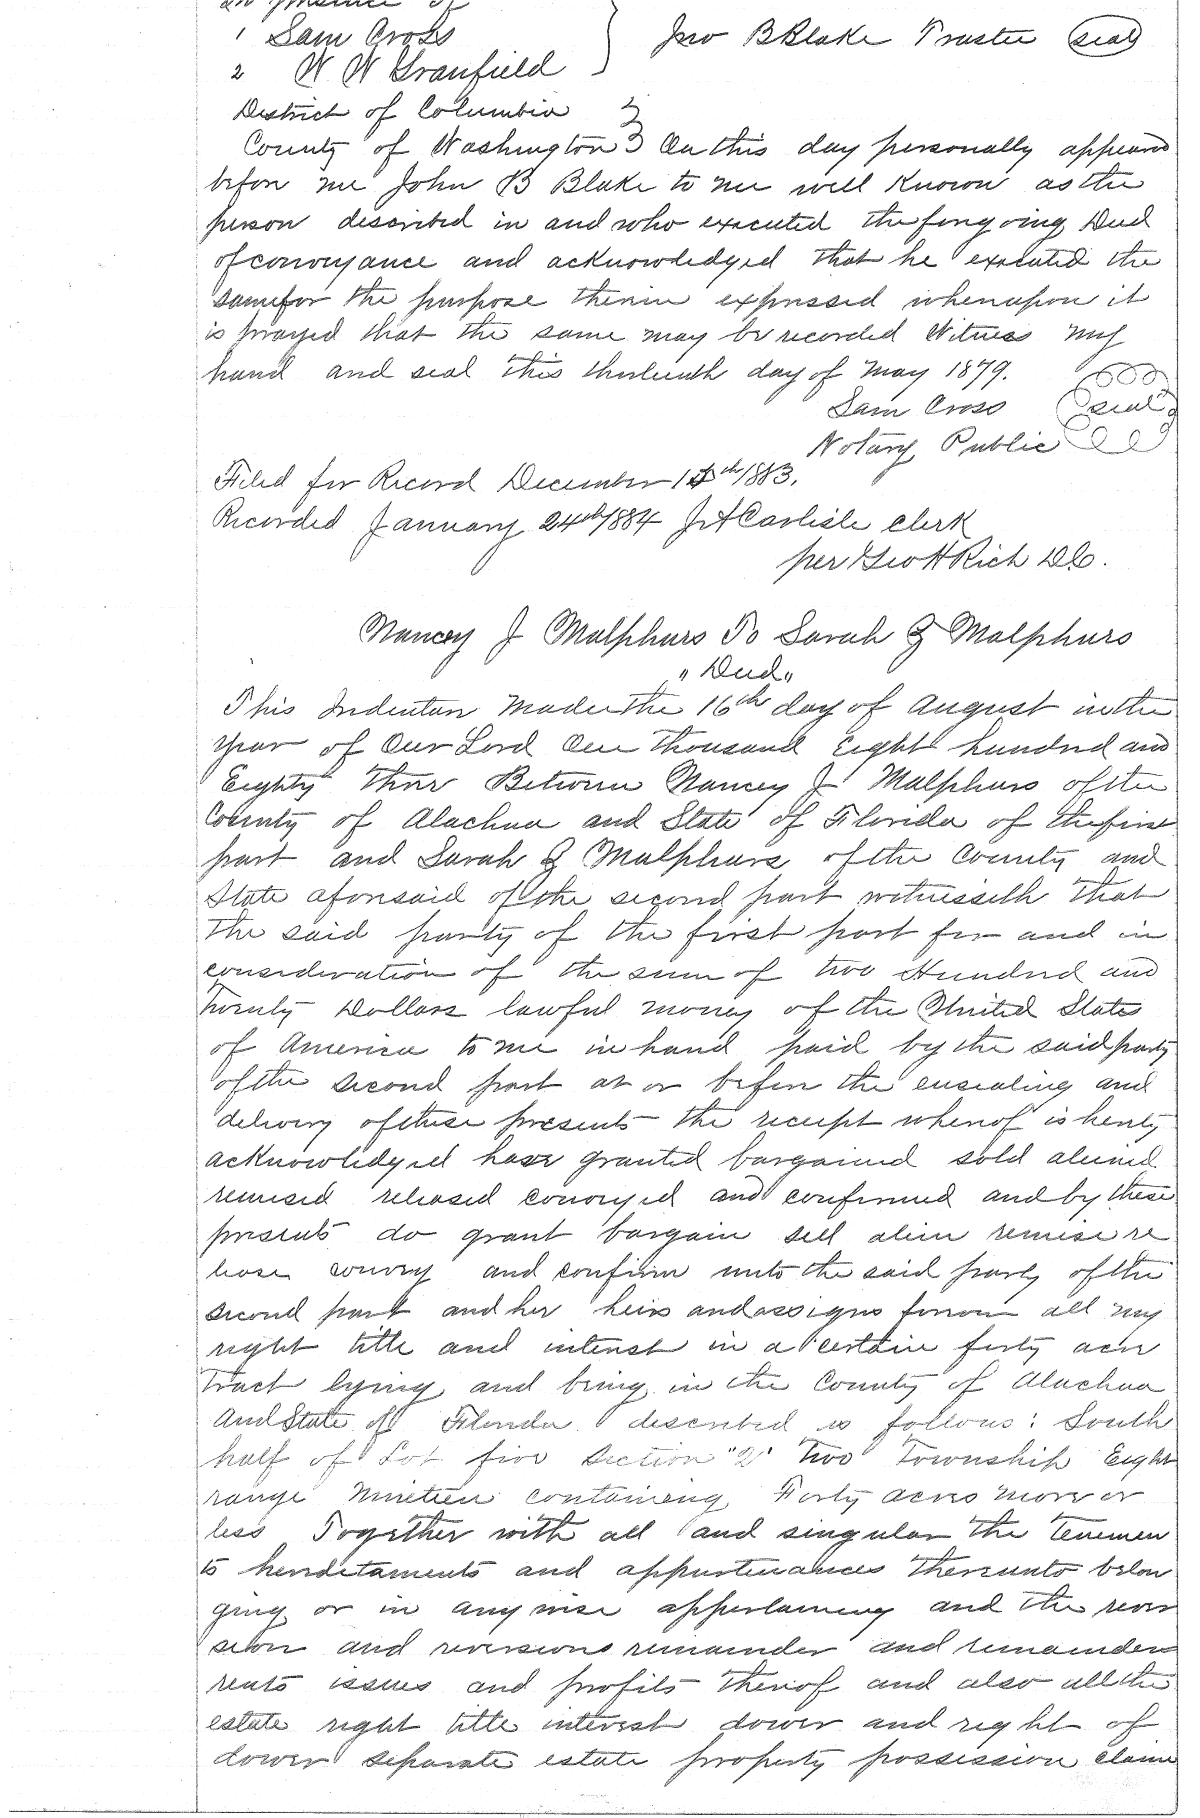 In presence of
1 Sam Cross
2 W W Granfield
Jno B Blake Trustee (seal)
District of Columbia
County of Washington On this day personally appeared
before me John B Blake to me well known as the
person described in and who executed the foregoing Deed
of conveyance and acknowledged that he executed the
same for the purpose therein expressed whereupon it
is prayed that the same may be recorded Witness my
hand and seal this thirteenth day of May 1879.
Sam Cross (seal)
Notary Public
Filed for Record December 15th/1883.
Recorded January 24th/1884 J A Carlisle clerk
per Geo H Rich D.C.
Nancey J Malphurs To Sarah Z Malphurs
"Deed"
This Indenture Made the 16th day of August in the
year of Our Lord One thousand Eight hundred and
Eighty three Between Nancey J Malphurs of the
County of Alachua and State of Florida of the first
part and Sarah Z Malphurs of the County and
State aforesaid of the second part witnesseth that
the said party of the first part for and in
consideration of the sum of two Hundred and
twenty Dollars lawful money of the United States
of America to me in hand paid by the said party
of the second part at or before the ensealing and
delivery of these presents the receipt whereof is hereby
acknowledged have granted bargained sold aliened
remised released conveyed and confirmed and by these
presents do grant bargain sell alien remise re
lease convey and confirm unto the said party of the
second part and her heirs and assigns forever all my
right title and interest in a certain forty acre
tract lying and being in the County of Alachua
And State of Florida described as follows: South
half of Lot five Section "2" two Township Eight
range Nineteen containing Forty acres more or
less Together with all and singular the tenemen
ts hereditaments and appurtenances thereunto belon
ging or in any wise appertaining and the rever
sion and reversions remainder and remainders
rents issues and profits thereof and also all the
estate right title interest dower and right of
dower separate estate property possession claim